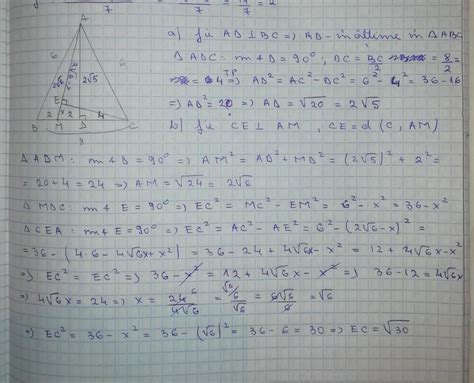 A
6
6
2√6-x
2√6
2√5
E
x
4
2
2
B
M
D
C
8
7 7 7 = 2
a) fie AD⊥BC => AD - înălțime în ΔABC
ΔADC: m∢D = 90°, DC = BC/2 = 8/2 =
= 4 =>TP AD² = AC² - DC² = 6² - 4² = 36 - 16
=> AD² = 20 => AD = √20 = 2√5
b) fie CE⊥AM, CE = d(C, AM)
ΔADM: m∢D = 90° => AM² = AD² + MD² = (2√5)² + 2² =
= 20 + 4 = 24 => AM = √24 = 2√6
ΔMDC: m∢E = 90° => EC² = MC² - EM² = 6² - x² = 36 - x²
ΔCEA: m∢E = 90° => EC² = AC² - AE² = 6² - (2√6 - x)² =
= 36 - (4·6 - 4√6x + x²) = 36 - 24 + 4√6x - x² = 12 + 4√6x - x²
=> EC² = EC² => 36 - x² = 12 + 4√6x - x² => 36 - 12 = 4√6x
=> 4√6x = 24 => x = 24/4√6 = 6/√6 = 6√6/6 = √6
=> EC² = 36 - x² = 36 - (√6)² = 36 - 6 = 30 => EC = √30